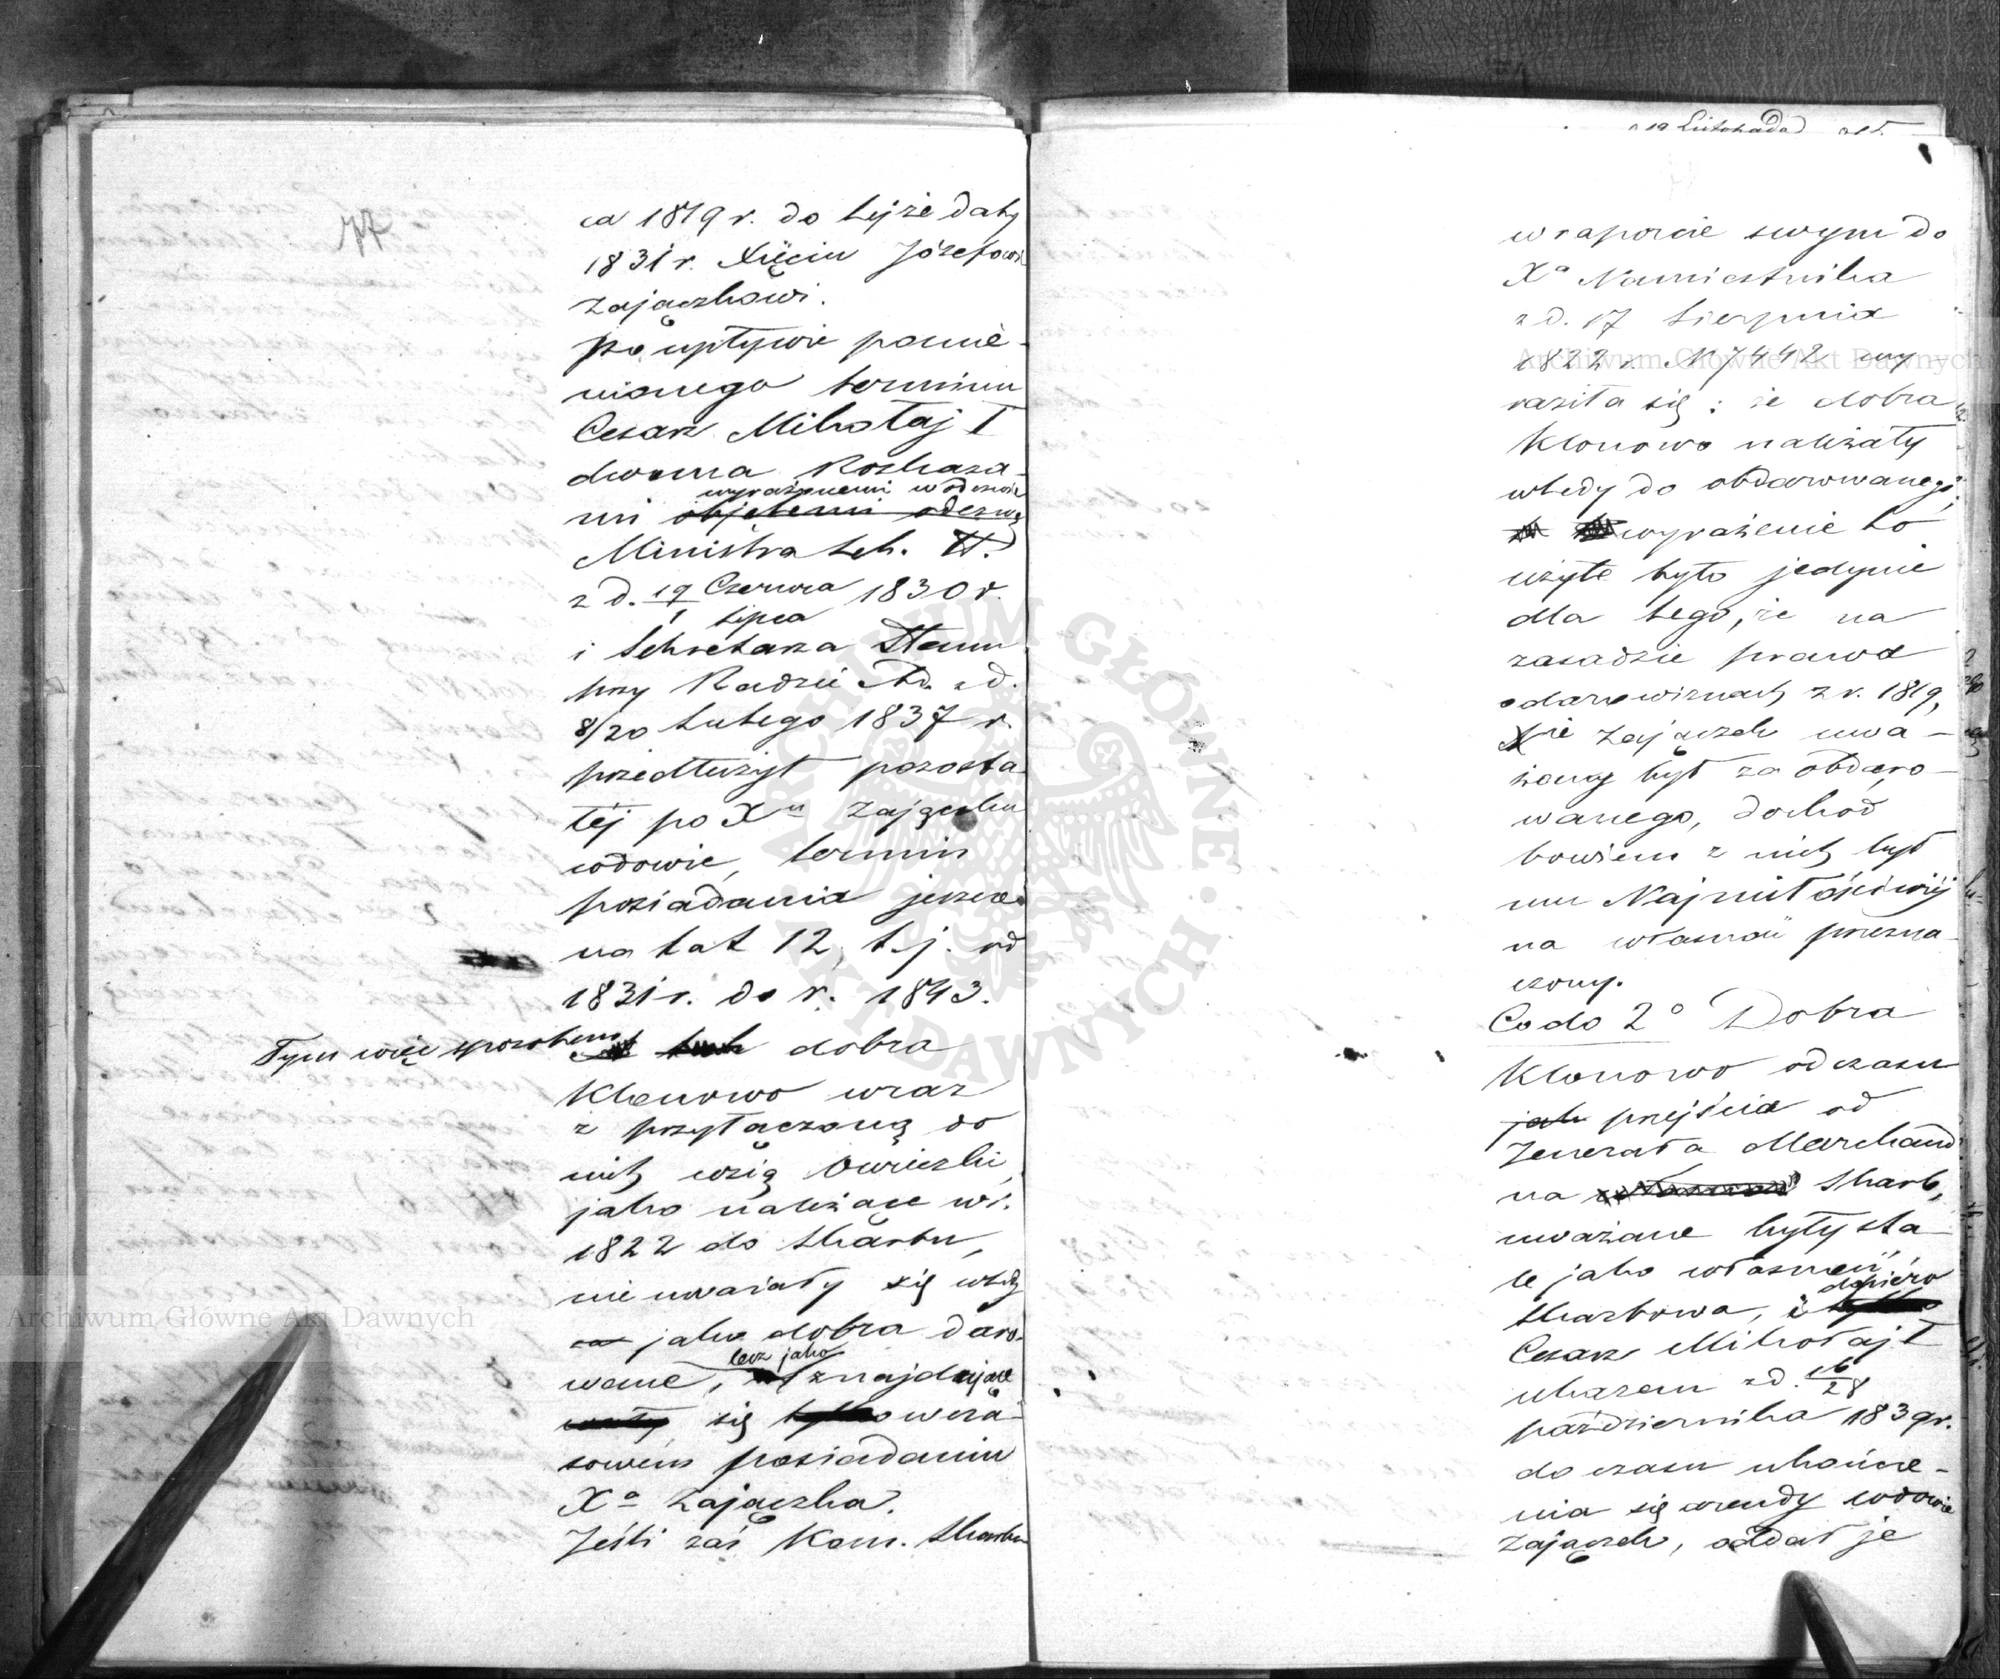 77
ca 1819 r. do tejże daty
1831 r. Xięciu Józefowi
Zajączkowi.
Po upływie pomie-
nionego terminu
Cesarz Mikołaj I
dwoma Rozkaza-
wyrażonemi w odezwie
mi objętemi odezwą
Ministra Sek. St.
z d. 19 Czerwca 1830 r.
1 Lipca
i Sekretarza Stanu
przy Radzie Ad. z d.
8/20 Lutego 1837 r.
przedłużył pozosta-
łéj po Xciu Zajączku
wdowie, termin
posiadania jeszcze
na lat 12, t. j. od
1831 r. do r. 1843.
Tym więc sposobem dobra
Klonowo wraz
z przyłączoną do
nich wsią Owieczki,
jako należące w r.
1822 do Skarbu,
nie uważały się wtedy
jako dobra daro-
lecz jako
wane, znajdujące
się w cza-
sowém posiadaniu
Xa Zajączka.
Jeśli zaś Kom. Skarbu
19 Listopada
w raporcie swym do
Xa Namiestnika
z d. 17 Sierpnia
1822 r. N 7442 wy-
raziła się: że dobra
Klonowo należały
wtedy do obdarowanego,
wyrażenie to
użyte było jedynie
dla tego, że na
zasadzie prawa
o darowiznach z r. 1819,
Xże Zajączek uwa-
żany był za obdaro-
wanego, dochód
bowiem z nich był
mu Najmiłościwiéj
na własność przezna-
czony.
Co do 2o Dobra
Klonowo od czasu
jak przejścia od
Jenerała Marchand
na Skarb,
uważane były sta-
le jako własność
dopiéro
Skarbowa, i
Cesarz Mikołaj I
ukazem z d. 16/28
Października 1839 r.
do czasu ukończe-
nia się arendy wdowie
Zajączek, oddał je
Archiwum Główne Akt Dawnych
Archiwum Główne Akt Dawnych
ARCHIWUM GŁÓWNE AKT DAWNYCH